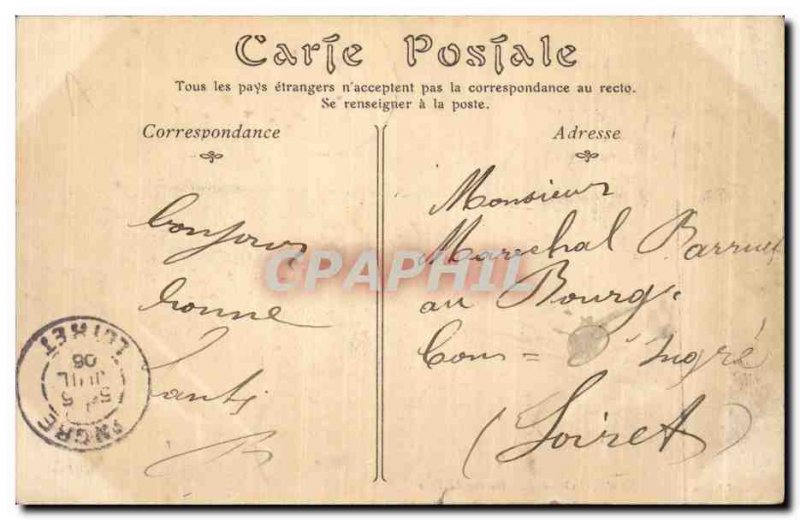 Carte Postale
Tous les pays étrangers n'acceptent pas la correspondance au recto.
Se renseigner à la poste.
Correspondance
bonjour
bonne
santé
B
Adresse
Monsieur
Marechal Barruet
au Bourg.
Com = D' Ingré
(Loiret)
INGRÉ
5
JUIL
06
LOIRET
CPAPHIL